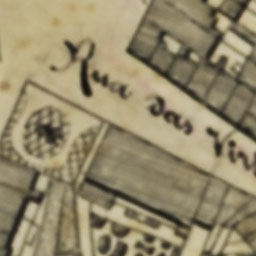 Rua das Vir